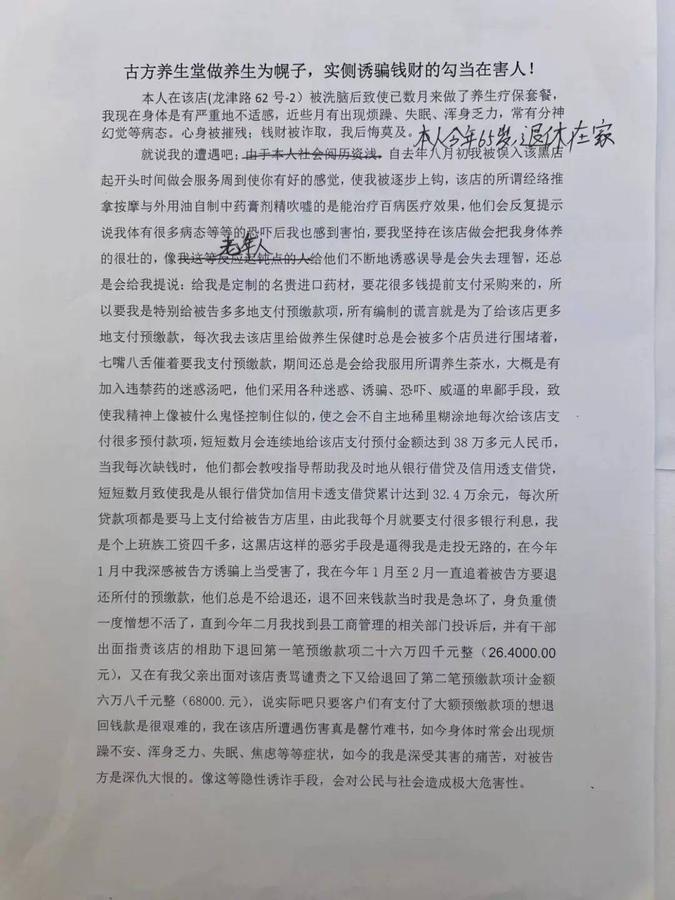 古方养生堂做养生为幌子，实侧诱骗钱财的勾当在害人！
本人在该店(龙津路 62 号-2）被洗脑后致使已数月来做了养生疗保套餐，
我现在身体是有严重地不适感，近些月有出现烦躁、失眠、浑身乏力，常有分神
幻觉等病态。心身被摧残；钱财被诈取，我后悔莫及。本人今年65岁，退休在家
就说我的遭遇吧；由于本人社会阅历资浅，自去年八月初我被误入该黑店
起开头时间做会服务周到使你有好的感觉，使我被逐步上钩，该店的所谓经络推
拿按摩与外用油自制中药膏剂精吹嘘的是能治疗百病医疗效果，他们会反复提示
说我体有很多病态等等的恐吓后我也感到害怕，要我坚持在该店做会把我身体养
老年人
的很壮的，像我这等反应迟钝点的人给他们不断地诱惑误导是会失去理智，还总
是会给我提说：给我是定制的名贵进口药材，要花很多钱提前支付采购来的，所
以要我是特别给被告多多地支付预缴款项，所有编制的谎言就是为了给该店更多
地支付预缴款，每次我去该店里给做养生保健时总是会被多个店员进行围堵着，
七嘴八舌催着要我支付预缴款，期间还总是会给我服用所谓养生茶水，大概是有
加入违禁药的迷惑汤吧，他们采用各种迷惑、诱骗、恐吓、威逼的卑鄙手段，致
使我精神上像被什么鬼怪控制住似的，使之会不自主地稀里糊涂地每次给该店支
付很多预付款项，短短数月会连续地给该店支付预付金额达到 38 万多元人民币，
当我每次缺钱时，他们都会教唆指导帮助我及时地从银行借贷及信用透支借贷，
短短数月致使我是从银行借贷加信用卡透支借贷累计达到 32.4 万余元，每次所
贷款项都是要马上支付给被告方店里，由此我每个月就要支付很多银行利息，我
是个上班族工资四千多，这黑店这样的恶劣手段是逼得我是走投无路的，在今年
1 月中我深感被告方诱骗上当受害了，我在今年 1 月至 2 月一直追着被告方要退
还所付的预缴款，他们总是不给退还，退不回来钱款当时我是急坏了，身负重债
一度憎想不活了，直到今年二月我找到县工商管理的相关部门投诉后，并有干部
出面指责该店的相助下退回第一笔预缴款项二十六万四千元整（26.4000.00
元），又在有我父亲出面对该店责骂谴责之下又给退回了第二笔预缴款项计金额
六万八千元整（68000.元），说实际吧只要客户们有支付了大额预缴款项的想退
回钱款是很艰难的，我在该店所遭遇伤害真是罄竹难书，如今身体时常会出现烦
躁不安、浑身乏力、失眠、焦虑等等症状，如今的我是深受其害的痛苦，对被告
方是深仇大恨的。像这等隐性诱诈手段，会对公民与社会造成极大危害性。